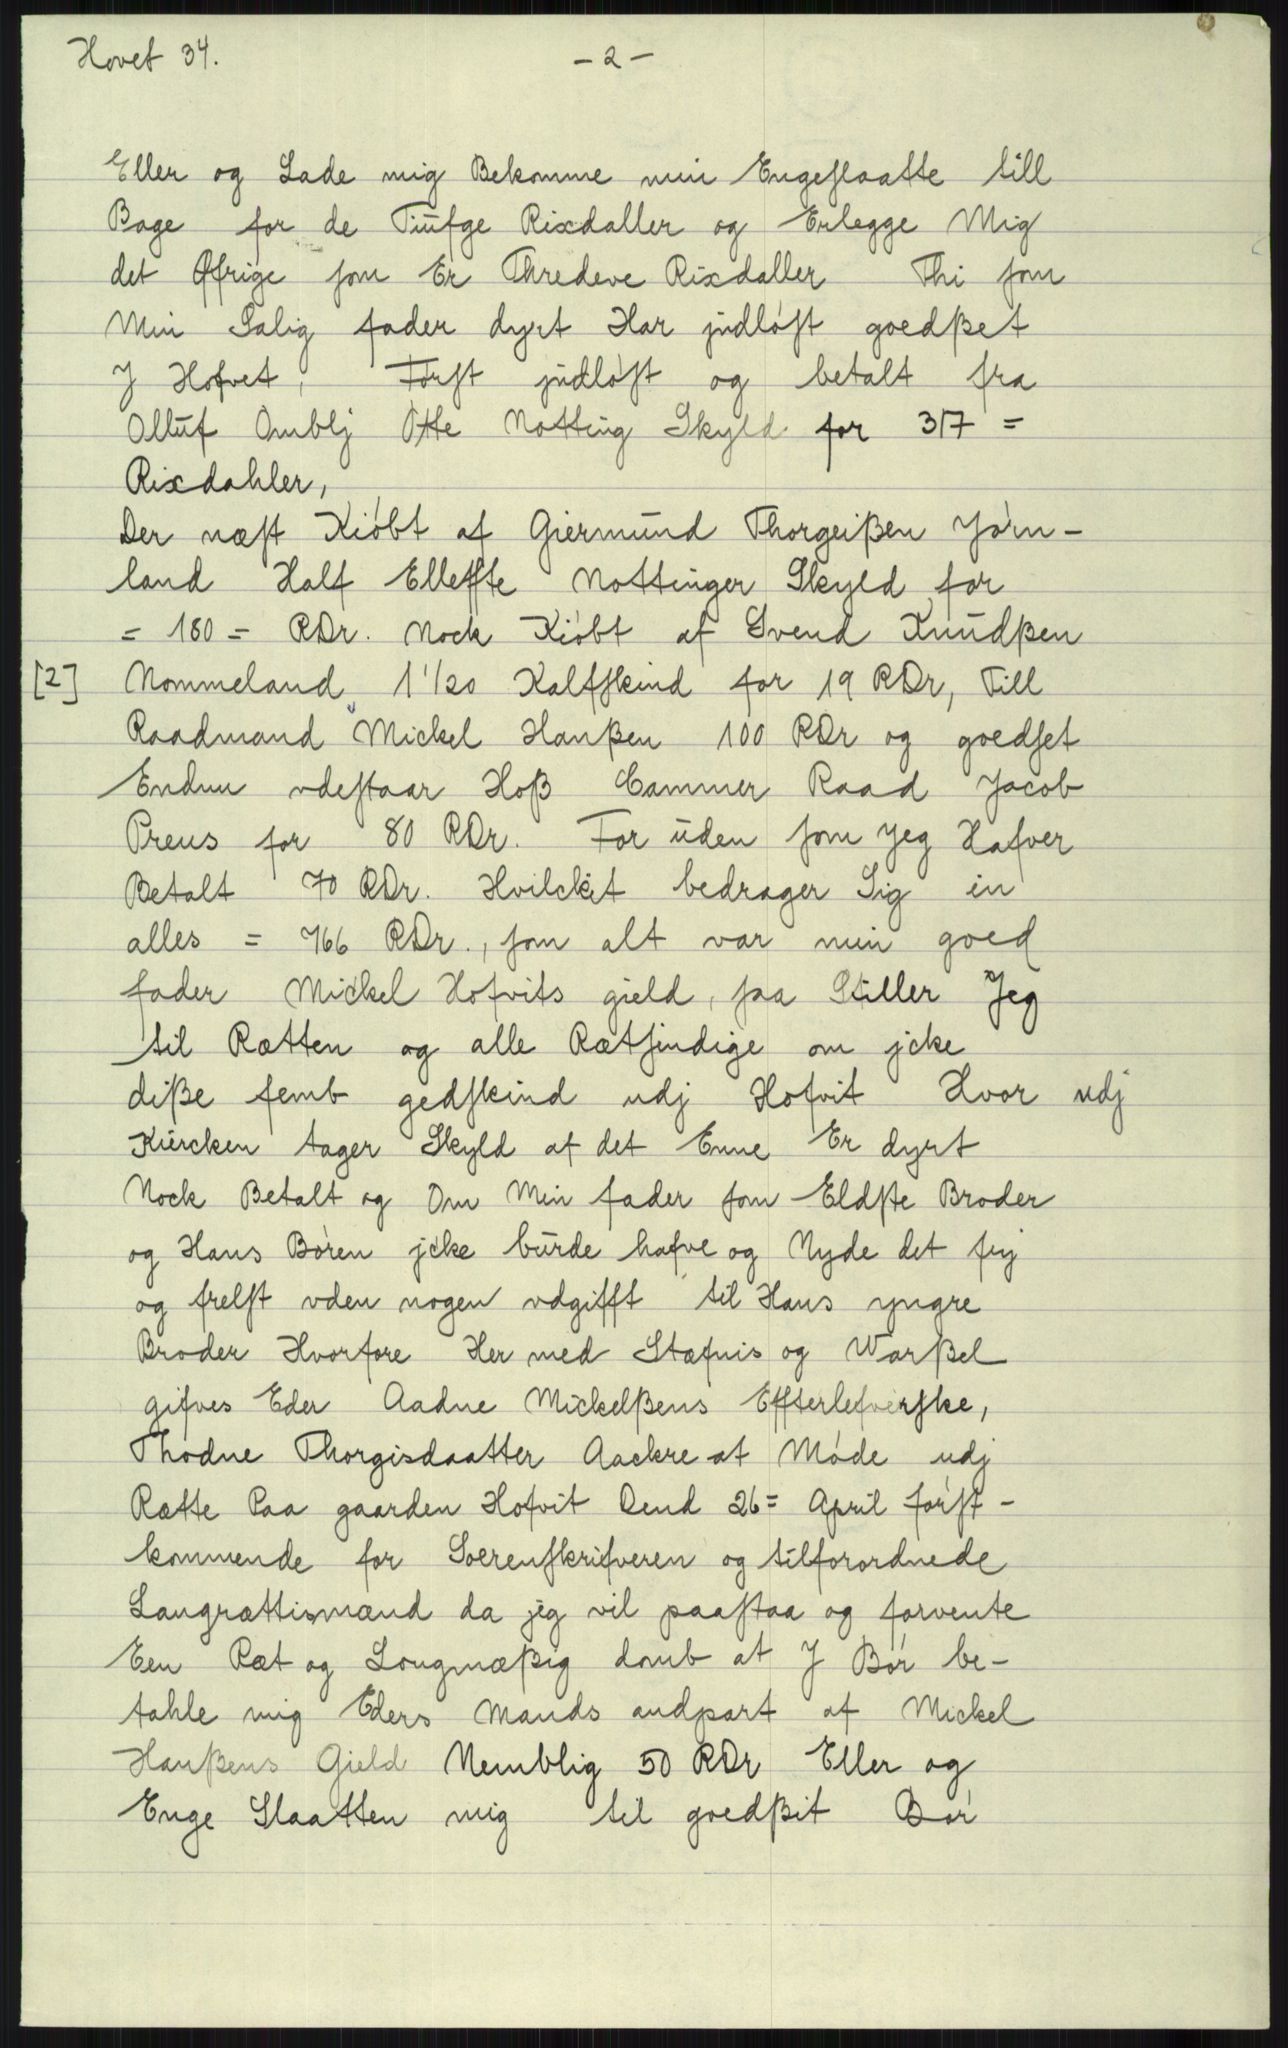 Hovet 34.
- 2 -
Eller og Lade mig Bekomme min Engeslaatte till
Bage for de Tiufge Rixdaller og Erlegge Mig
det Øfrige som Er Thredeve Rixdaller Thi som
Min Salig fader dyrt Har jndløst goedßet
J Hofvet, Først jndløst og betalt fra
Olluf Omblj Otte Notting Skyld for 317 =
Rixdahler,
Der næst Kiøbt af Giermund Thorgeißen Jørn-
land Half Elleffte Nottinger Skyld for
= 180 = RDr. Nock Kiøbt af Svend Knudßen
[2] Nommeland 1 1/20 Kalfskind for 19 RDr, Till
Raadmand Mickel Hanßen 100 RDr og goedset
Endnu vdestaar Hoß Cammer Raad Jacob
Preus for 80 RDr. For uden som Jeg Hafver
Betalt 70 RDr. Hvilckit bedrager Sig in
alles = 766 RDr., som alt var min goed
fader Mickel Hofvits gield, saa Stiller Jeg
til Rætten og alle Rætsindige om jcke
diße femb gedskind udj Hofvit Hvor udj
Kircken tager Skyld af det Enne Er dyrt
Nock Betalt og Om Min fader som Eldste Broder
og Hans Børen jcke burde hafve og Nyde det frj
og frelst vden nogen vdgifft til Hans yngre
Broder Hvorfore Her med Stæfnis og Warßel
gifves Eder Aadne Mickelßens Effterlefverske,
Thodne Thorgisdaatter Aackre at Møde udj
Rætte Paa gaarden Hofvit Dend 26 = April først-
kommende for Soerenskrifveren og tilforordnede
Laugrættismænd da jeg vil paastaa og forvente
Een Ræt og Lougmæßig domb at J Bør be-
tahle mig Eders Mands andpart af Mickel
Hanßens Gield Nemblig 50 RDr Eller og
Enge Slaatten mig til goedßit Bør